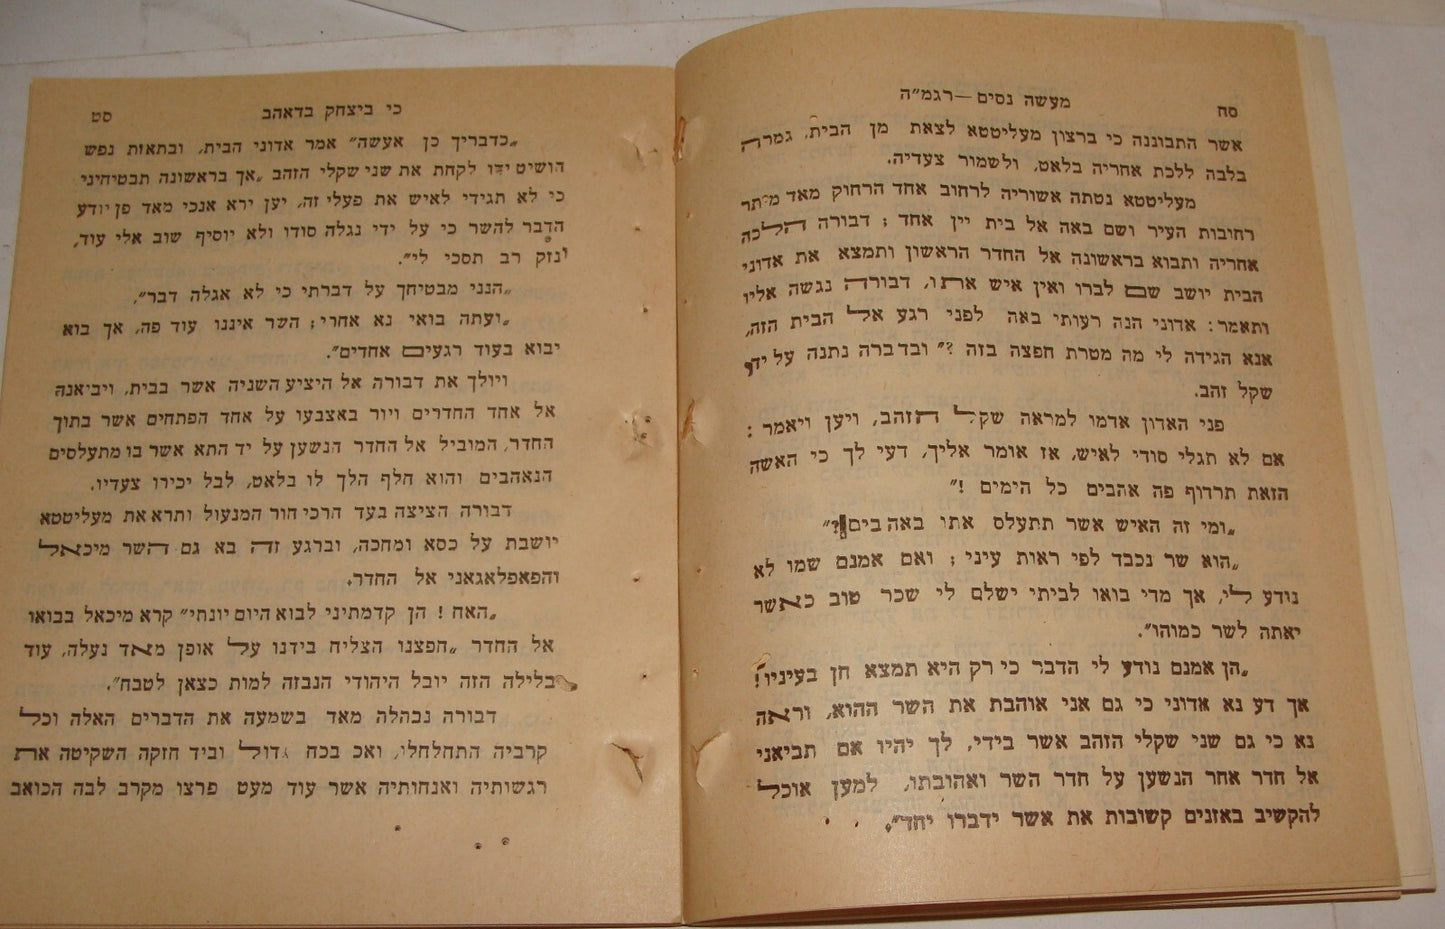 סח
מעשה נסים — רגמ״ה
אשר התבוננה כי ברצון מעליטטא לצאת מן הבית, גמרה
בלבה ללכת אחריה בלאט, ולשמור צעדיה.
מעליטטא נטתה אשוריה לרחוב אחד הרחוק מאד מיתר
רחובות העיר ושם באה אל בית יין אחד ; דבורה הלכה
אחריה ותבוא בראשונה אל החדר הראשון ותמצא את אדוני
הבית יושב שם לברו ואין איש אתו, דבורה נגשה אליו
ותאמר : אדוני הנה רעותי באה לפני רגע אל הבית הזה,
אנא הגידה לי מה מטרת חפצה בזה ?״ ובדברה נתנה על ידו
שקל זהב.
פני האדון אדמו למראה שקל הזהב, ויען ויאמר :
אם לא תגלי סודי לאיש, אז אומר אליך, דעי לך כי האשה
הזאת תרדוף פה אהבים כל הימים !״
„ומי זה האיש אשר תתעלס אתו באהבים?״
„הוא שר נכבד לפי ראות עיני ; ואם אמנם שמו לא
נודע לי, אך מדי בואו לביתי ישלם לי שכר טוב כאשר
יאתה לשר כמוהו״.
„הן אמנם נודע לי הדבר כי רק היא תמצא חן בעיניו !
אך דע נא אדוני כי גם אני אוהבת את השר ההוא, וראה
נא כי גם שני שקלי הזהב אשר בידי, לך יהיו אם תביאני
אל חדר אחר הנשען על חדר השר ואהובתו, למען אוכל
להקשיב באזנים קשובות את אשר ידברו יחד״.
כי ביצחק בדאהב
סט
„כדבריך כן אעשה״ אמר אדוני הבית, ובתאות נפש
הושיט ידו לקחת את שני שקלי הזהב „אך בראשונה תבטיחיני
כי לא תגידי לאיש את פעלי זה, יען ירא אנכי מאד פן יודע
הדבר להשר כי על ידי נגלה סודו ולא יוסיף שוב אלי עוד,
ונזק רב תסכי לי״.
„הנני מבטיחך על דברתי כי לא אגלה דבר״,
„ועתה בואי נא אחרי ; השר איננו עוד פה, אך בוא
יבוא בעוד רגעים אחדים״.
ויולך את דבורה אל היציע השניה אשר בבית, ויביאנה
אל אחד החדרים ויור באצבעו על אחד הפתחים אשר בתוך
החדר, המוביל אל החדר הנשען על יד התא אשר בו מתעלסים
הנאהבים והוא חלף הלך לו בלאט, לבל יכירו צעדיו.
דבורה הציצה בעד הרכי חור המנעול ותרא את מעליטטא
יושבת על כסא ומחכה, וברגע זה בא גם השר מיכאל
והפאפלאגאני אל החדר.
„האח ! הן קדמתיני לבוא היום יונתי״ קרא מיכאל בבואו
אל החדר „חפצנו הצליח בידנו על אופן מאד נעלה, עוד
בלילה הזה יובל היהודי הנבזה למות כצאן לטבח״.
דבורה נבהלה מאד בשמעה את הדברים האלה וכל
קרביה התחלחלו, ואכ בכח גדול וביד חזקה השקיטה את
רגשותיה ואנחותיה אשר עוד מעט פרצו מקרב לבה הכואב